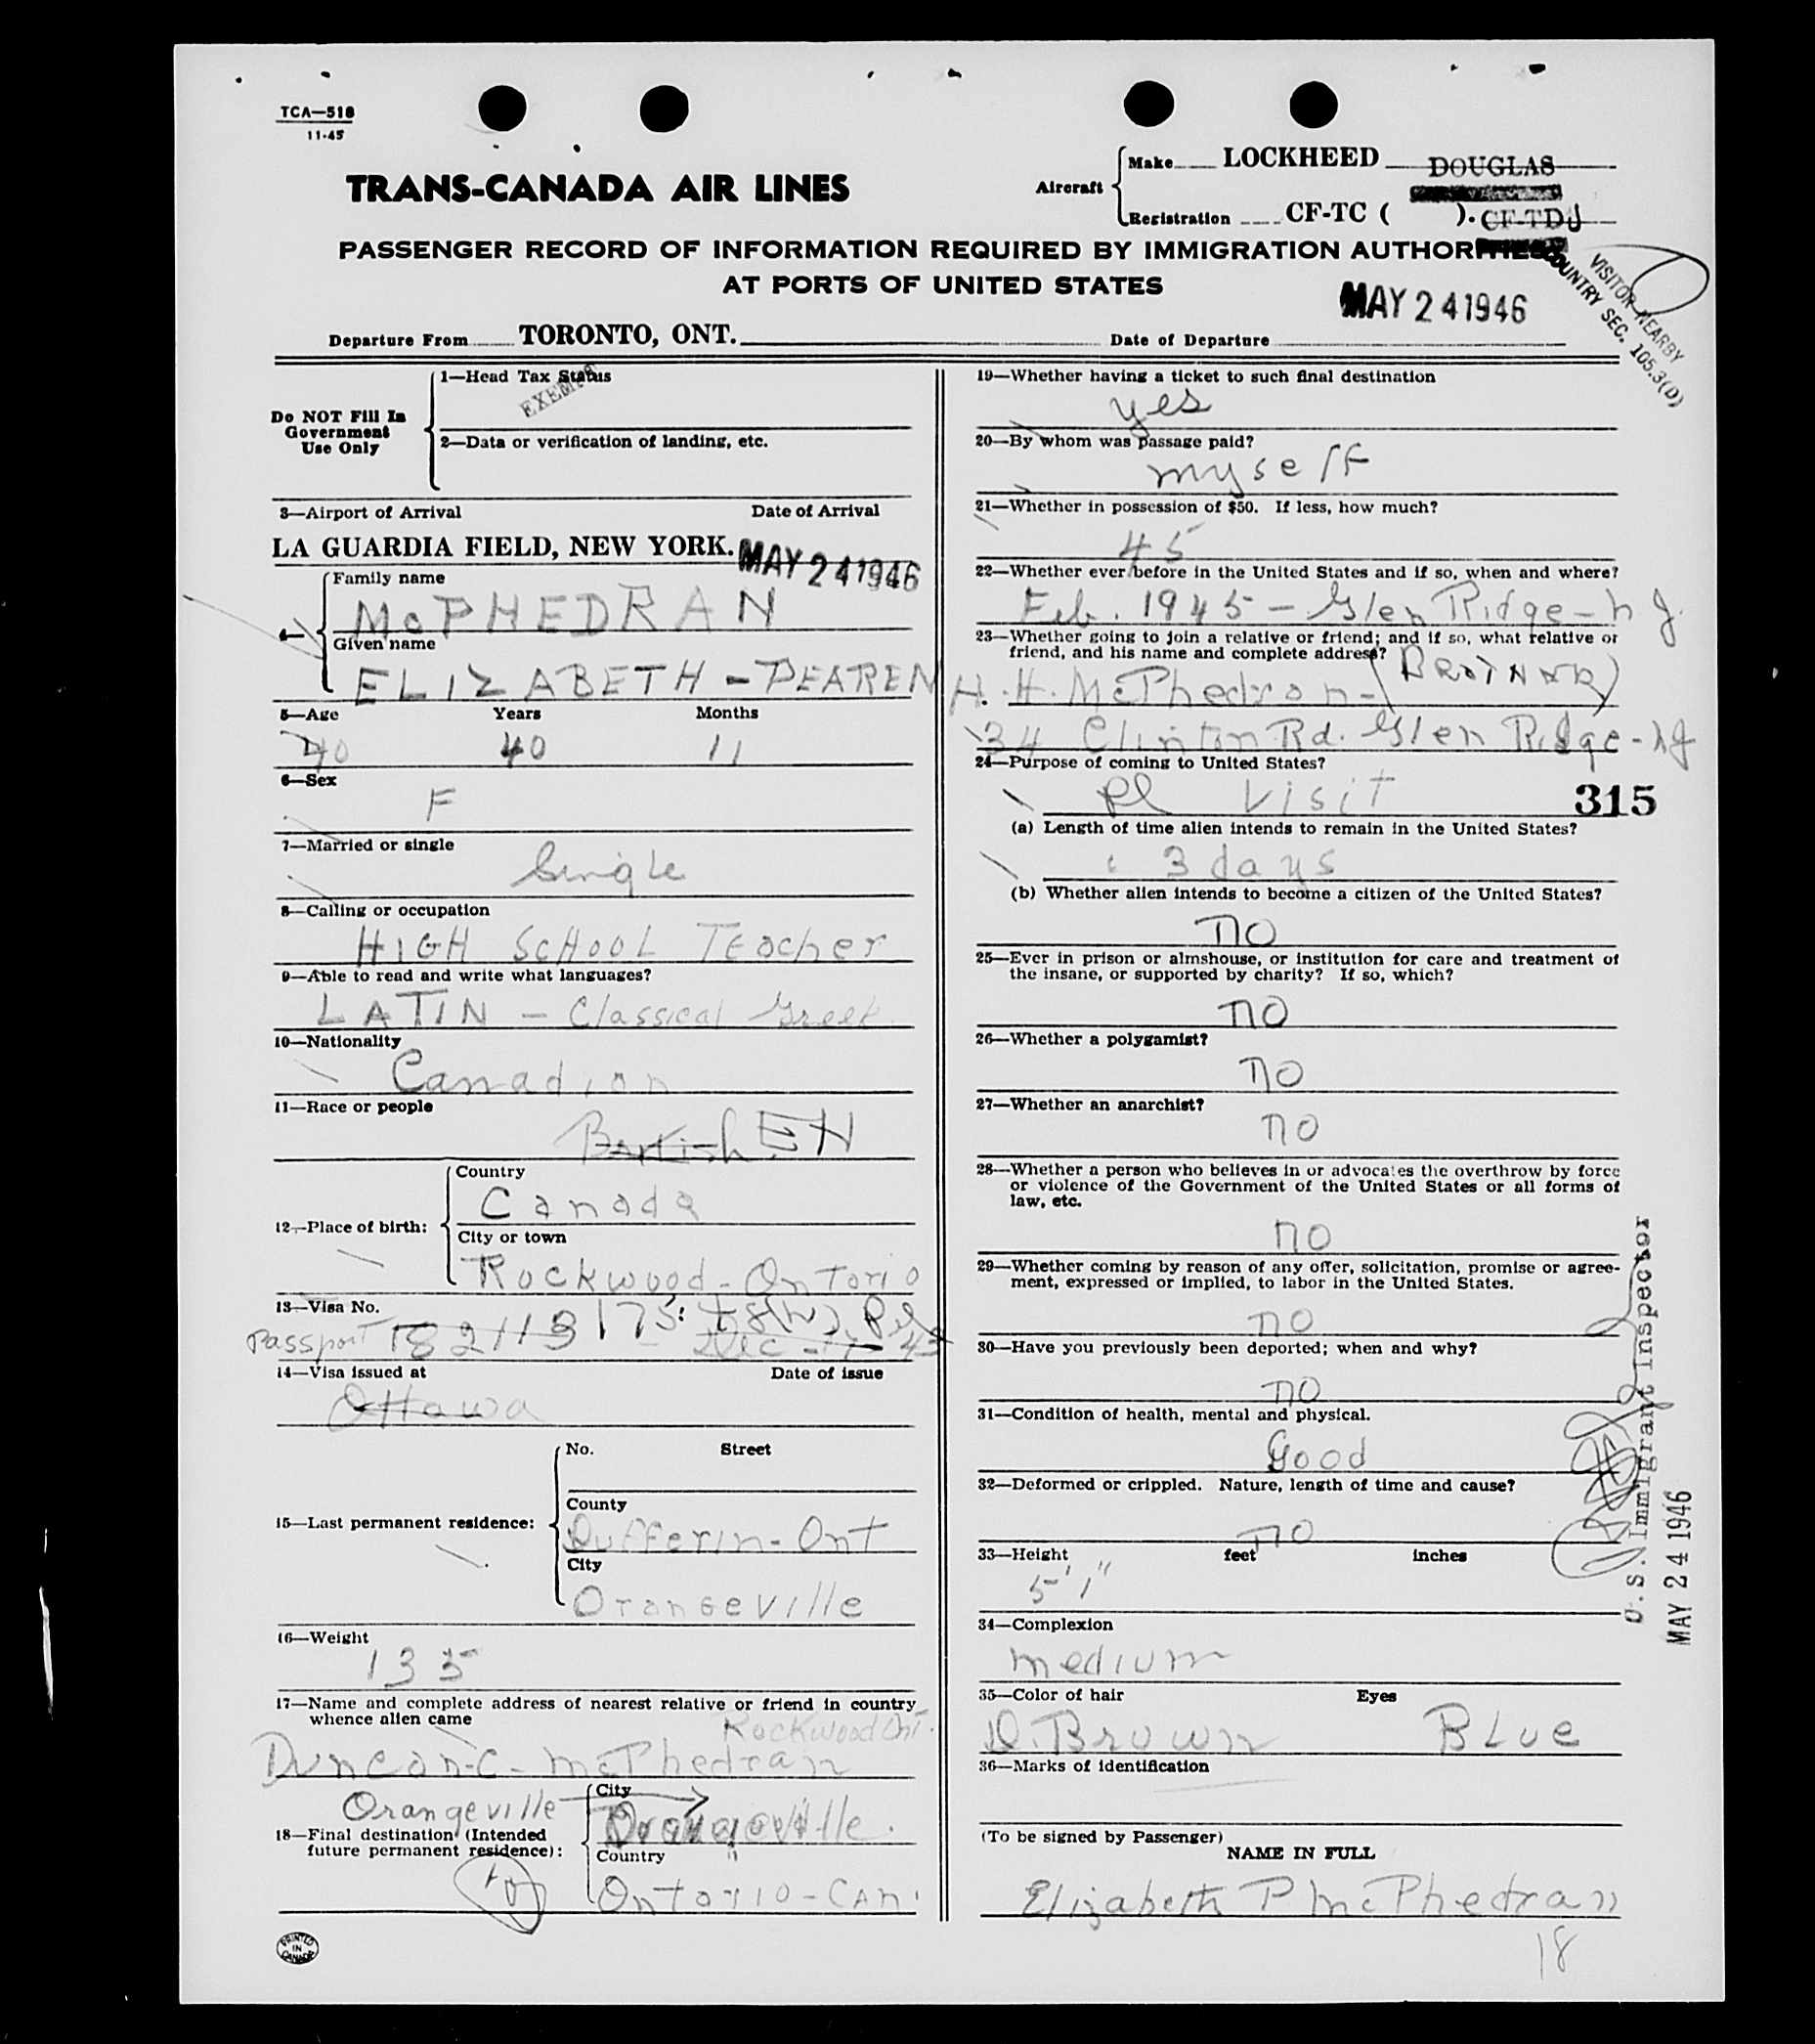 TCA—518
11-45
TRANS-CANADA AIR LINES
Aircraft
Make LOCKHEED DOUGLAS
Registration CF-TC ( ). CF-TDJ
PASSENGER RECORD OF INFORMATION REQUIRED BY IMMIGRATION AUTHORITIES
AT PORTS OF UNITED STATES
VISITOR NEARBY
COUNTRY SEC. 105.3(D)
MAY 24 1946
Departure From TORONTO, ONT. Date of Departure
Do NOT Fill In
Government
Use Only
1—Head Tax Status
EXEMPT
2—Data or verification of landing, etc.
3—Airport of Arrival Date of Arrival
LA GUARDIA FIELD, NEW YORK. MAY 24 1946
4—
Family name
McPHEDRAN
Given name
ELIZABETH - PEAREN
5—Age Years Months
40 40 11
6—Sex
F
7—Married or single
Single
8—Calling or occupation
HIGH SCHOOL TEacher
9—Able to read and write what languages?
LATIN - Classical Greek
10—Nationality
Canadian
11—Race or people
British EN
12—Place of birth:
Country
Canada
City or town
Rockwood - Ontario
13—Visa No.
175:
Passport 182113 - Dec - 43
14—Visa issued at Date of issue
Ottawa
15—Last permanent residence:
No. Street
County
Dufferin - Ont
City
Orangeville
16—Weight
135
17—Name and complete address of nearest relative or friend in country
whence alien came
Rockwood Ont.
Duncan - C - McPhedran
Orangeville
18—Final destination (Intended
future permanent residence):
City
Orangeville.
Country
Ontario - CAN
PRINTED
IN
CANADA
19—Whether having a ticket to such final destination
yes
20—By whom was passage paid?
myself
21—Whether in possession of $50. If less, how much?
45
22—Whether ever before in the United States and if so, when and where?
Feb. 1945 - Glen Ridge - N J.
23—Whether going to join a relative or friend; and if so, what relative or
friend, and his name and complete address?
(BROTHER)
H. H. McPhedran -
34 Clinton Rd. Glen Ridge - NJ
24—Purpose of coming to United States?
Pl Visit
315
(a) Length of time alien intends to remain in the United States?
3 days
(b) Whether alien intends to become a citizen of the United States?
no
25—Ever in prison or almshouse, or institution for care and treatment of
the insane, or supported by charity? If so, which?
no
26—Whether a polygamist?
no
27—Whether an anarchist?
no
28—Whether a person who believes in or advocates the overthrow by force
or violence of the Government of the United States or all forms of
law, etc.
no
29—Whether coming by reason of any offer, solicitation, promise or agree-
ment, expressed or implied, to labor in the United States.
no
30—Have you previously been deported; when and why?
no
31—Condition of health, mental and physical.
Good
32—Deformed or crippled. Nature, length of time and cause?
no
33—Height feet inches
5' 1"
34—Complexion
medium
35—Color of hair Eyes
D. Brown Blue
36—Marks of identification
(To be signed by Passenger)
NAME IN FULL
Elizabeth P McPhedran
18
U.S. Immigrant Inspector
MAY 24 1946